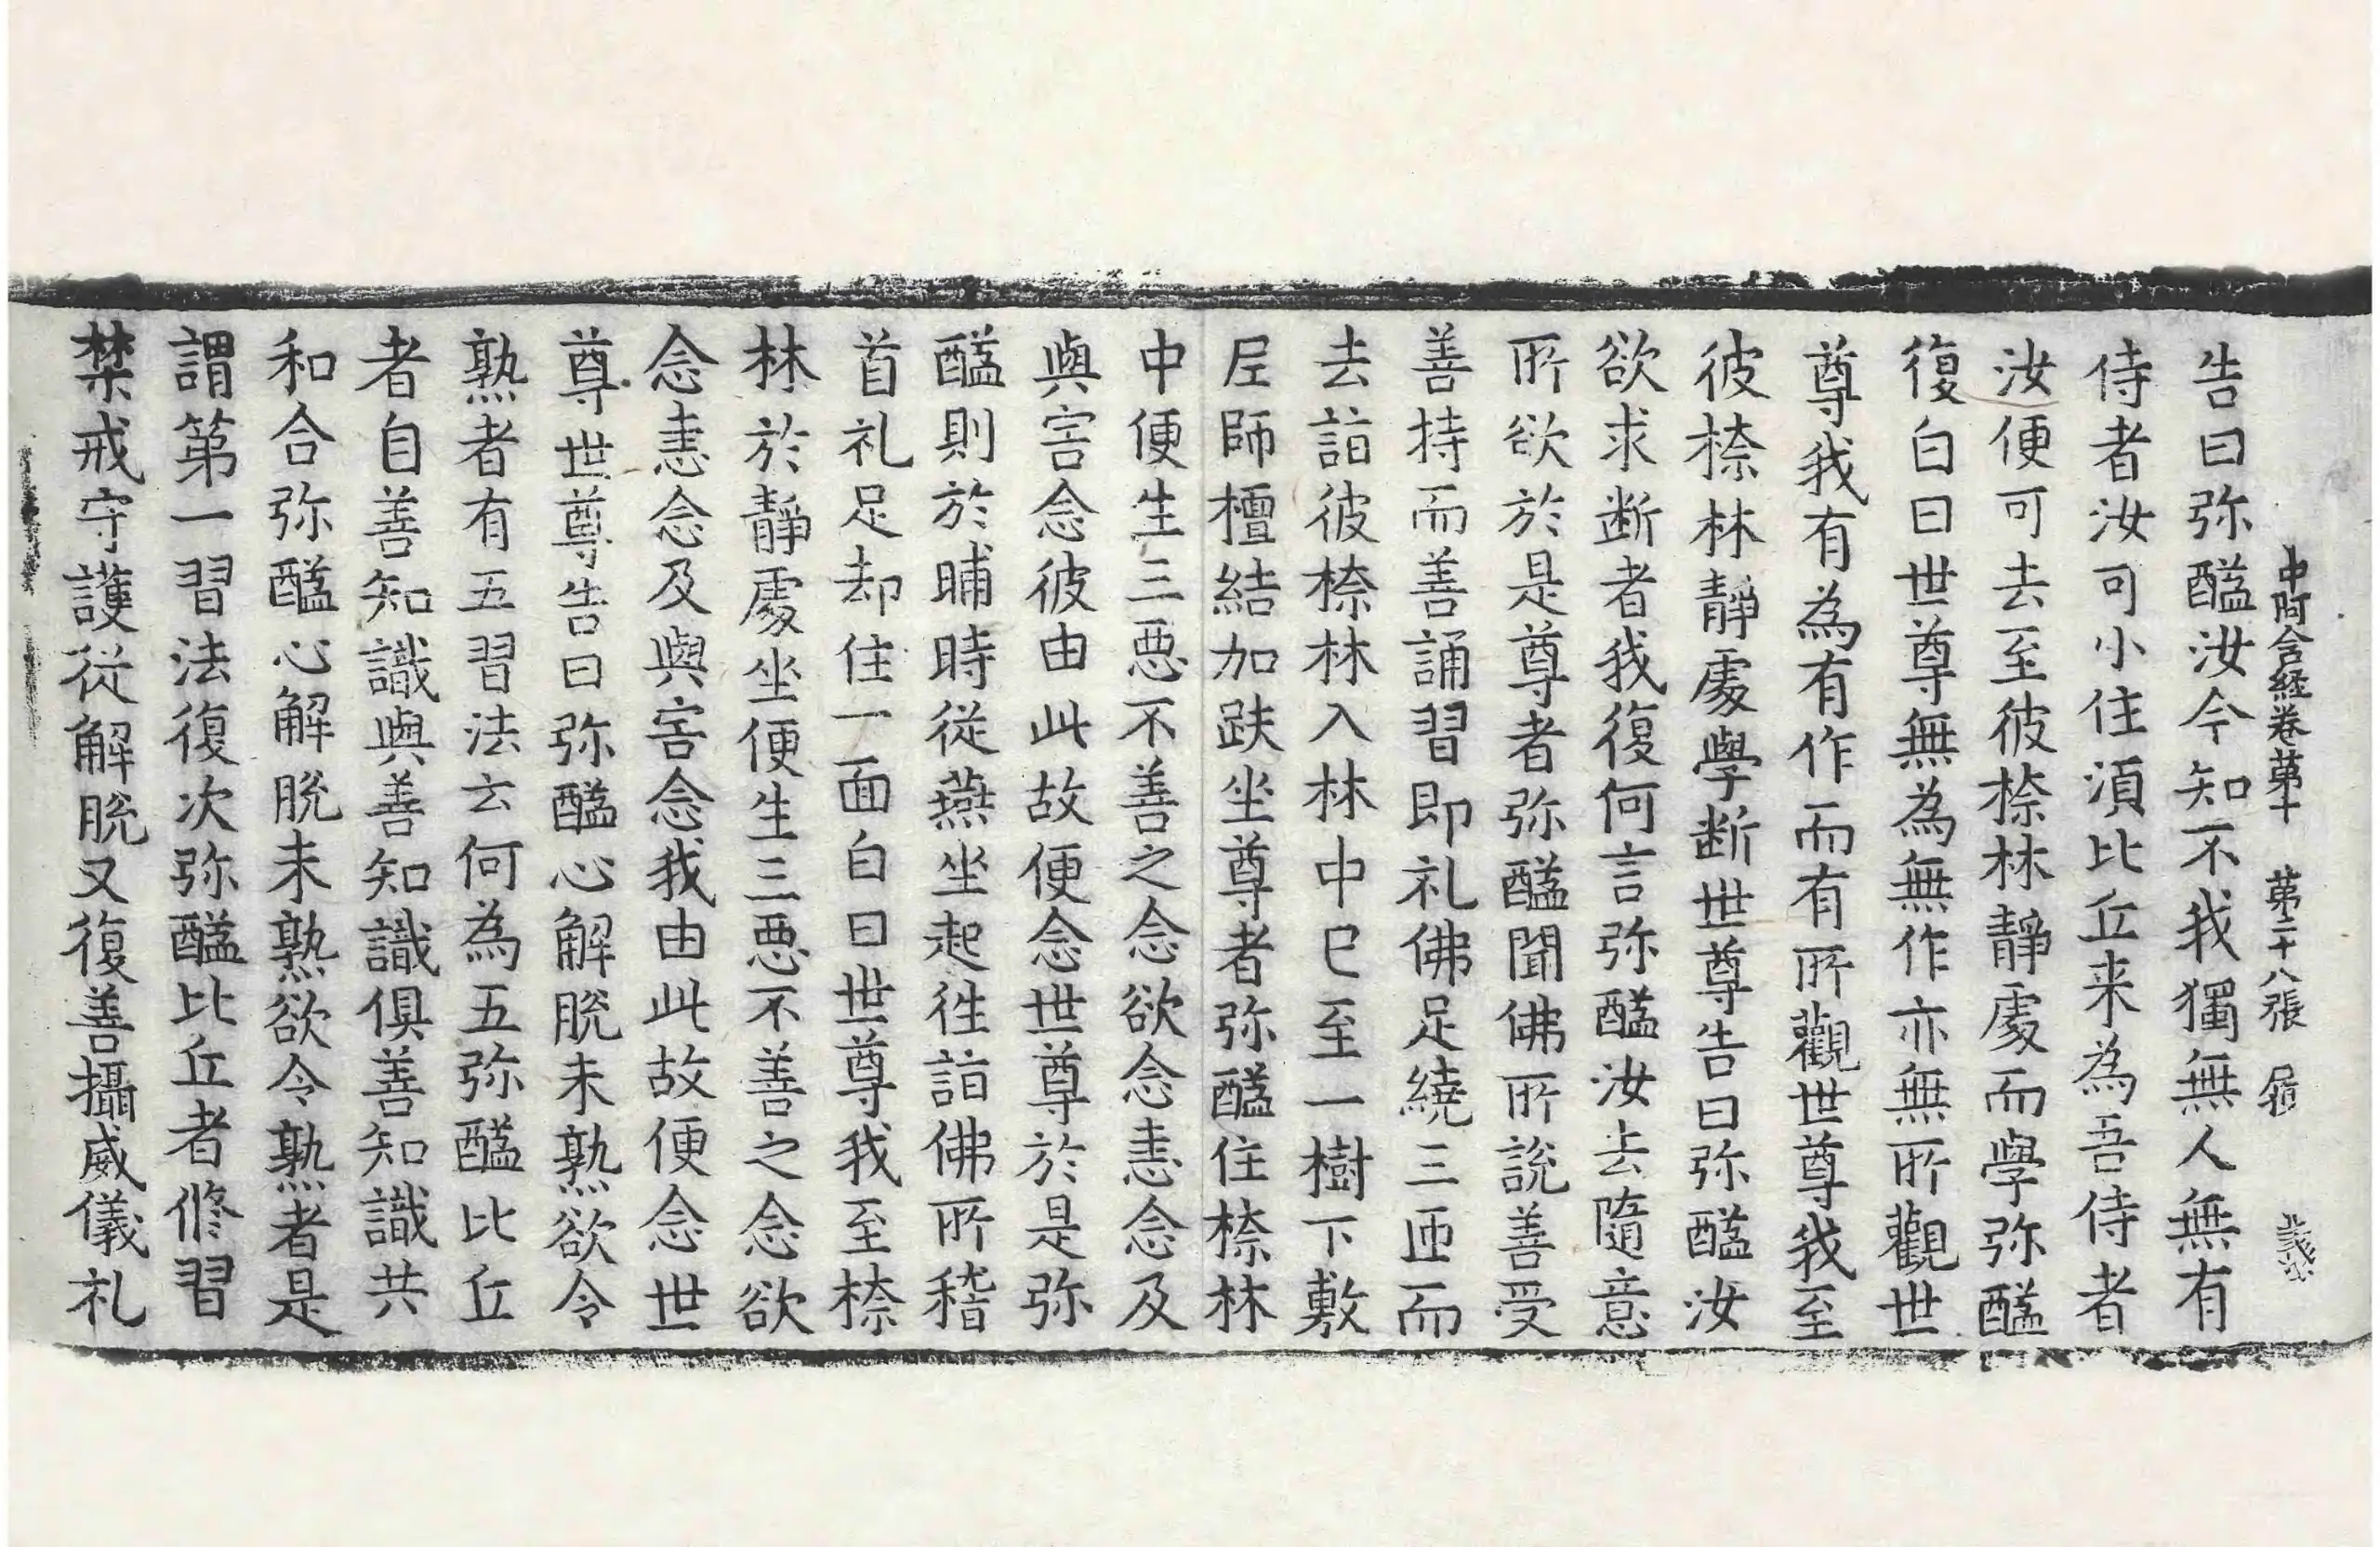 中阿含経卷第十　第二十八張
告曰弥醯汝今知不我獨無人無有
侍者汝可小住湏比丘来為吾侍者
汝便可去至彼㮈林靜處而學弥醯
復白曰世尊無為無作亦無所觀世
尊我有為有作而有所觀世尊我至
彼㮈林靜處學断世尊告曰弥醯汝
欲求断者我復何言弥醯汝去隨意
所欲於是尊者弥醯聞佛所說善受
善持而善誦習即礼佛足繞三匝而
去詣彼㮈林入林中已至一樹下敷
尼師檀結加趺坐尊者弥醯住㮈林
中便生三惡不善之念欲念恚念及
與害念彼由此故便念世尊於是弥
醯則於晡時從燕坐起往詣佛所稽
首礼足却住一面白曰世尊我至㮈
林於靜處坐便生三惡不善之念欲
念恚念及與害念我由此故便念世
尊世尊告曰弥醯心解脫未熟欲令
熟者有五習法云何為五弥醯比丘
者自善知識與善知識俱善知識共
和合弥醯心解脫未熟欲令熟者是
謂第一習法復次弥醯比丘者修習
禁戒守護從解脫又復善攝威儀礼